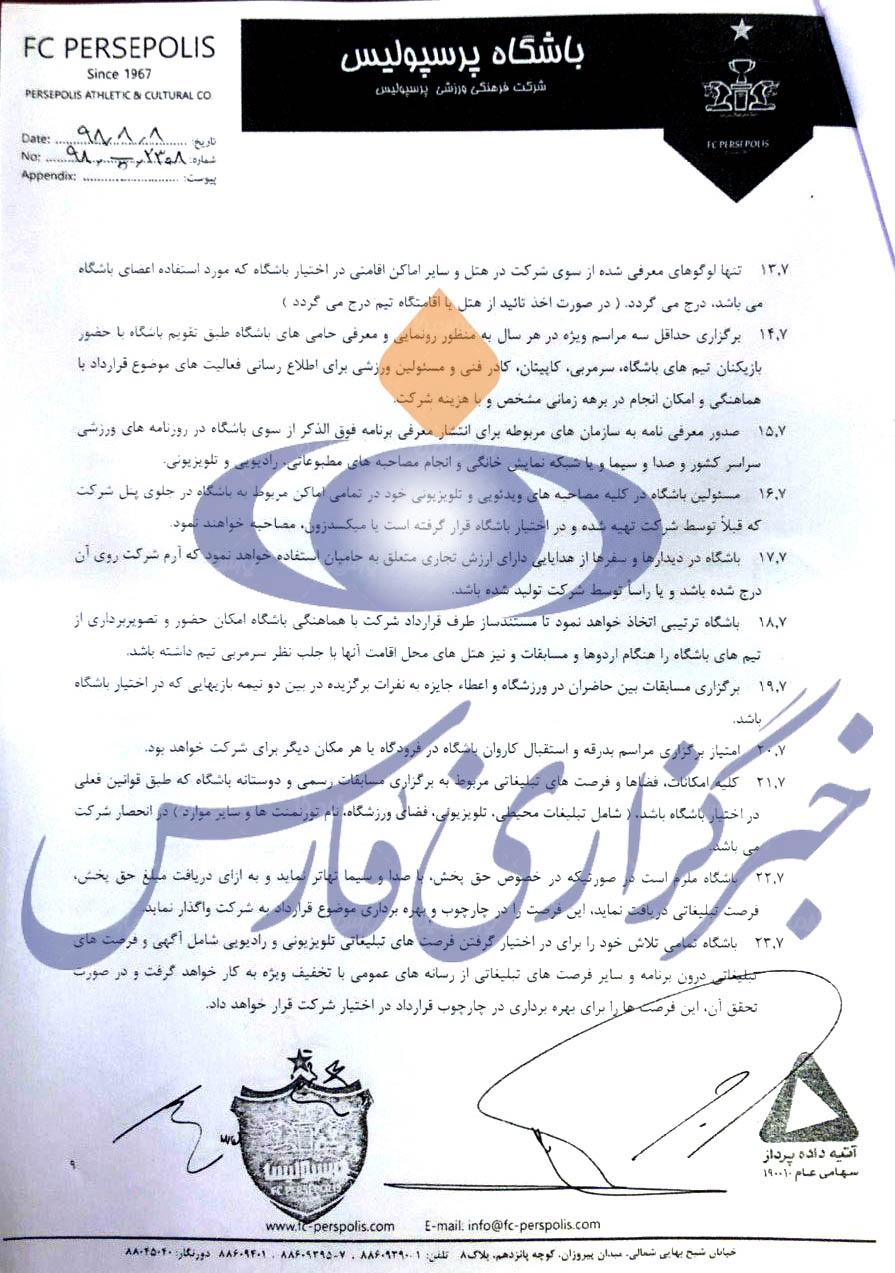 FC PERSEPOLIS
Since 1967
PERSEPOLIS ATHLETIC & CULTURAL CO.
باشگاه پرسپولیس
شرکت فرهنگی ورزشی پرسپولیس
FC PERSEPOLIS
Date: ۹۸/۸/۸ تاریخ:
No: ۹۸ ۲۳۰۸ شماره:
Appendix: پیوست:
۱۳.۷ تنها لوگوهای معرفی شده از سوی شرکت در هتل و سایر اماکن اقامتی در اختیار باشگاه که مورد استفاده اعضای باشگاه
می باشد، درج می گردد. ( در صورت اخذ تائید از هتل یا اقامتگاه تیم درج می گردد )
۱۴.۷ برگزاری حداقل سه مراسم ویژه در هر سال به منظور رونمایی و معرفی حامی های باشگاه طبق تقویم باشگاه با حضور
بازیکنان تیم های باشگاه، سرمربی، کاپیتان، کادر فنی و مسئولین ورزشی برای اطلاع رسانی فعالیت های موضوع قرارداد با
هماهنگی و امکان انجام در برهه زمانی مشخص و با هزینه شرکت.
۱۵.۷ صدور معرفی نامه به سازمان های مربوطه برای انتشار معرفی برنامه فوق الذکر از سوی باشگاه در روزنامه های ورزشی
سراسر کشور و صدا و سیما و یا شبکه نمایش خانگی و انجام مصاحبه های مطبوعاتی، رادیویی و تلویزیونی.
۱۶.۷ مسئولین باشگاه در کلیه مصاحبه های ویدئویی و تلویزیونی خود در تمامی اماکن مربوط به باشگاه در جلوی پنل شرکت
که قبلاً توسط شرکت تهیه شده و در اختیار باشگاه قرار گرفته است یا میکسدزون، مصاحبه خواهند نمود.
۱۷.۷ باشگاه در دیدارها و سفرها از هدایایی دارای ارزش تجاری متعلق به حامیان استفاده خواهد نمود که آرم شرکت روی آن
درج شده باشد و یا راساً توسط شرکت تولید شده باشد.
۱۸.۷ باشگاه ترتیبی اتخاذ خواهد نمود تا مستندساز طرف قرارداد شرکت با هماهنگی باشگاه امکان حضور و تصویربرداری از
تیم های باشگاه را هنگام اردوها و مسابقات و نیز هتل های محل اقامت آنها با جلب نظر سرمربی تیم داشته باشد.
۱۹.۷ برگزاری مسابقات بین حاضران در ورزشگاه و اعطاء جایزه به نفرات برگزیده در بین دو نیمه بازیهایی که در اختیار باشگاه
باشد.
۲۰.۷ امتیاز برگزاری مراسم بدرقه و استقبال کاروان باشگاه در فرودگاه یا هر مکان دیگر برای شرکت خواهد بود.
۲۱.۷ کلیه امکانات، فضاها و فرصت های تبلیغاتی مربوط به برگزاری مسابقات رسمی و دوستانه باشگاه که طبق قوانین فعلی
در اختیار باشگاه باشد، ( شامل تبلیغات محیطی، تلویزیونی، فضای ورزشگاه، نام تورنمنت ها و سایر موارد ) در انحصار شرکت
می باشد.
۲۲.۷ باشگاه ملزم است در صورتیکه در خصوص حق پخش، با صدا و سیما تهاتر نماید و به ازای دریافت مبلغ حق پخش،
فرصت تبلیغاتی دریافت نماید، این فرصت را در چارچوب و بهره برداری موضوع قرارداد به شرکت واگذار نماید.
۲۳.۷ باشگاه تمامی تلاش خود را برای در اختیار گرفتن فرصت های تبلیغاتی تلویزیونی و رادیویی شامل آگهی و فرصت های
تبلیغاتی درون برنامه و سایر فرصت های تبلیغاتی از رسانه های عمومی با تخفیف ویژه به کار خواهد گرفت و در صورت
تحقق آن، این فرصت ها را برای بهره برداری در چارچوب قرارداد در اختیار شرکت قرار خواهد داد.
خبرگزاری فارس
آتیه داده پرداز
سهامی عام ۱۹۰۰۱۰
FC PERSEPOLIS
۹
www.fc-perspolis.com E-mail: info@fc-perspolis.com
خیابان شیخ بهایی شمالی، میدان پیروزان، کوچه پانزدهم، پلاک۸ تلفن: ۸۸۶۰۹۳۹۰۱ ، ۷-۸۸۶۰۹۳۹۵ ، ۸۸۶۰۹۴۰۱ دورنگار: ۸۸۰۴۵۰۴۰